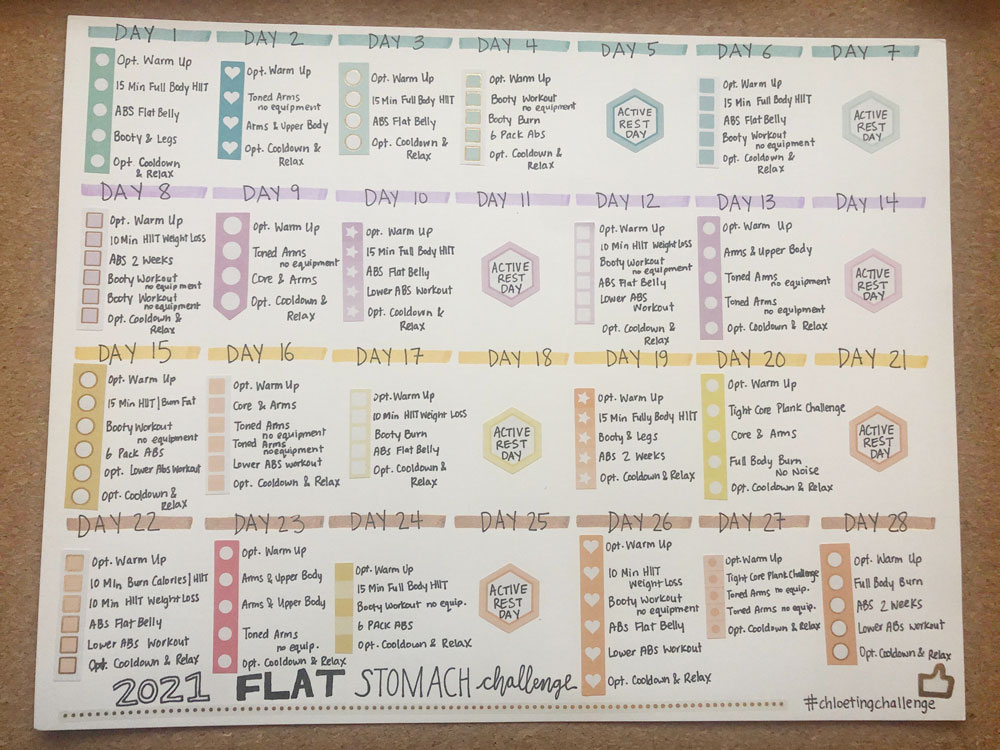 DAY 1
Opt. Warm Up
15 Min Full Body HIIT
ABS Flat Belly
Booty & Legs
Opt Cooldown
& Relax
DAY 2
Opt. Warm Up
Toned Arms
no equipment
Arms & Upper Body
Opt. Cooldown &
Relax
DAY 3
Opt. Warm Up
15 Min Full Body HIIT
ABS Flat Belly
Opt. Cooldown &
Relax
DAY 4
Opt. Warm Up
Booty Workout
no equipment
Booty Burn
6 Pack Abs
Opt. Cooldown &
Relax
DAY 5
ACTIVE
REST
DAY
DAY 6
Opt. Warm Up
15 Min Full Body HIIT
ABS Flat Belly
Booty Workout
no equipment
Opt. Cooldown &
Relax
DAY 7
ACTIVE
REST
DAY
DAY 8
Opt. Warm Up
10 Min HIIT Weight Loss
ABS 2 Weeks
Booty Workout
no equipment
Booty Workout
no equipment
Opt. Cooldown &
Relax
DAY 9
Opt. Warm Up
Toned Arms
no equipment
Core & Arms
Opt. Cooldown &
Relax
DAY 10
Opt. Warm Up
15 Min Full Body HIIT
ABS Flat Belly
Lower ABS Workout
Opt. Cooldown &
Relax
DAY 11
ACTIVE
REST
DAY
DAY 12
Opt. Warm Up
10 Min HIIT Weight Loss
Booty Workout
no equipment
ABS Flat Belly
Lower ABS
Workout
Opt. Cooldown &
Relax
DAY 13
Opt. Warm Up
Arms & Upper Body
Toned Arms
no equipment
Toned Arms
no equipment
Opt. Cooldown & Relax
DAY 14
ACTIVE
REST
DAY
DAY 15
Opt. Warm Up
15 Min HIIT | Burn Fat
Booty Workout
no equipment
6 Pack ABS
Opt. Lower Abs Workout
Opt. Cooldown &
Relax
DAY 16
Opt. Warm Up
Core & Arms
Toned Arms
no equipment
Toned Arms
no equipment
Lower ABS workout
Opt. Cooldown & Relax
DAY 17
Opt. Warm Up
10 Min HIIT Weight Loss
Booty Burn
ABS Flat Belly
Opt. Cooldown &
Relax
DAY 18
ACTIVE
REST
DAY
DAY 19
Opt. Warm Up
15 Min Fully Body HIIT
Booty & Legs
ABS 2 Weeks
Opt. Cooldown & Relax
DAY 20
Opt. Warm Up
Tight Core Plank Challenge
Core & Arms
Full Body Burn
No Noise
Opt. Cooldown & Relax
DAY 21
ACTIVE
REST
DAY
DAY 22
Opt. Warm Up
10 Min Burn Calories | HIIT
10 Min HIIT Weight Loss
ABS Flat Belly
Lower ABS Workout
Opt. Cooldown & Relax
DAY 23
Opt. Warm Up
Arms & Upper Body
Arms & Upper Body
Toned Arms
no equip.
Opt. Cooldown & Relax
DAY 24
Opt. Warm Up
15 Min Full Body HIIT
Booty Workout no equip.
6 PACK ABS
Opt. Cooldown & Relax
DAY 25
ACTIVE
REST
DAY
DAY 26
Opt. Warm Up
10 Min HIIT
Weight Loss
Booty Workout
no equipment
ABS Flat Belly
Lower ABS Workout
Opt. Cooldown & Relax
DAY 27
Opt. Warm Up
Tight Core Plank Challenge
Toned Arms no equip.
Toned Arms no equip.
Opt. Cooldown & Relax
DAY 28
Opt. Warm Up
Full Body Burn
ABS 2 Weeks
Lower ABS Workout
Opt. Cooldown & Relax
2021 FLAT STOMACH challenge
#chloetingchallenge